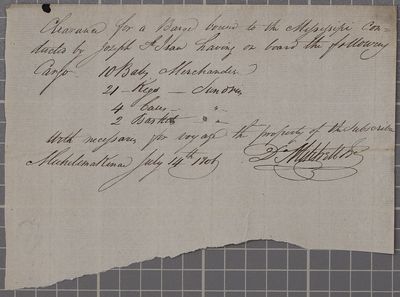 Clearance for a Barge bound to the Missisipi Con-
ducted by Joseph St Jean having on board the following
Cargo 10 Bales Merchandise
21 — Kegs — Sundries
4 Cases — "
2 Baskets " "
With necessaries for voyage the property of the Subscriber
Michilimakinac July 14th 1806